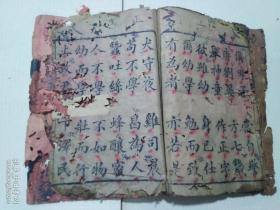 唐劉晏 方七歲
舉神童 作正字
彼雖幼 身已仕
爾幼學 勉而致
有為者 亦若是
犬守夜 雞司晨
苟不學 曷為人
蠶吐絲 蜂釀
人不學 不如物
幼而學 壯而行
上致 澤民